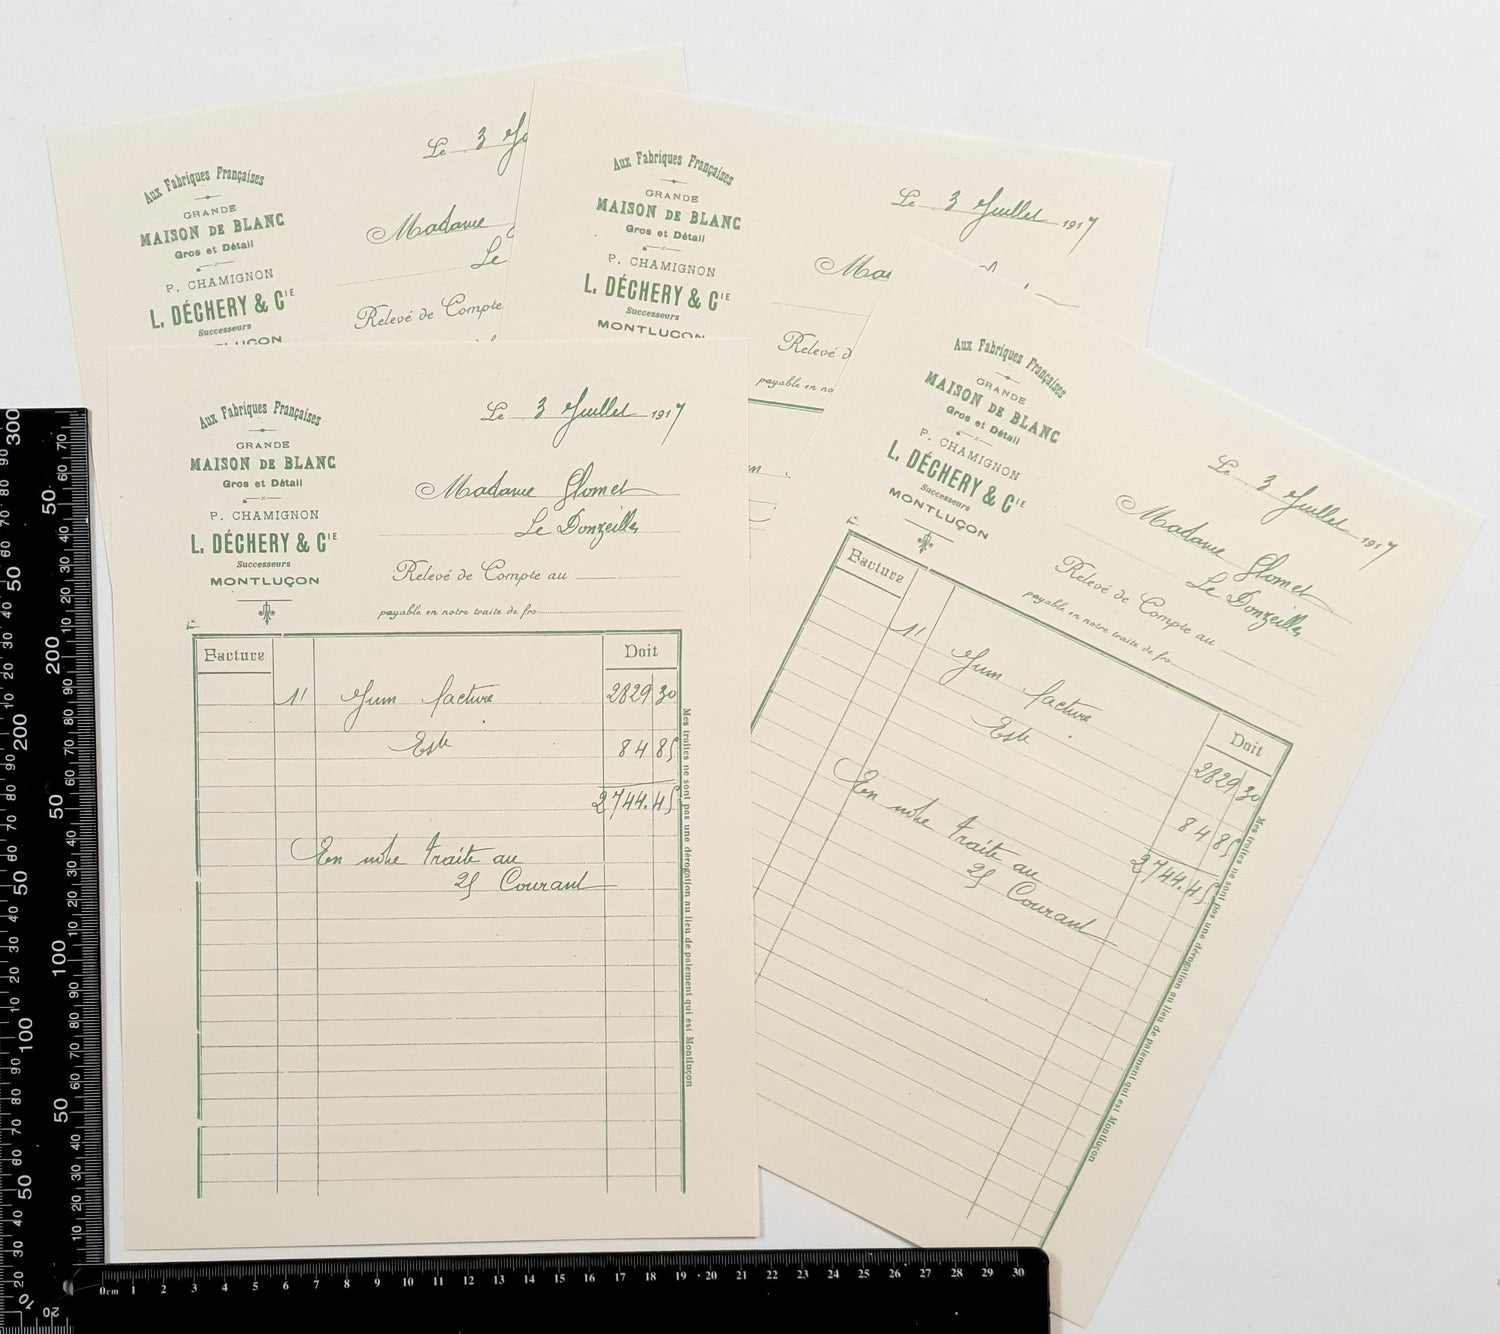 Aux Fabriques Françaises
GRANDE
MAISON DE BLANC
Gros et Détail
P. CHAMIGNON
L. DÉCHERY & CIE
Successeurs
Le 3
Madame
Le
Relevé de Compte
Aux Fabriques Françaises
GRANDE
MAISON DE BLANC
Gros et Détail
P. CHAMIGNON
L. DÉCHERY & CIE
Successeurs
MONTLUÇON
Le 3 Juillet 1917
Relevé d
payable en no
Aux Fabriques Françaises
GRANDE
MAISON DE BLANC
Gros et Détail
P. CHAMIGNON
L. DÉCHERY & CIE
Successeurs
MONTLUÇON
Le 3 Juillet 1917
Madame Glomet
Le Donzeille
Relevé de Compte au
payable en notre traite de frs
Facture
Doit
11 Juin facture 2829 30
Este 84 85
2744.45
En notre traite au
25 Courant
Mes traites ne sont pas une dérogation au lieu de paiement qui est Montluçon
Aux Fabriques Françaises
GRANDE
MAISON DE BLANC
Gros et Détail
P. CHAMIGNON
L. DÉCHERY & CIE
Successeurs
MONTLUÇON
Le 3 Juillet 1917
Madame Glomet
Le Donzeille
Relevé de Compte au
payable en notre traite de frs
Facture
Doit
11 Juin facture 2829 30
Este 84 85
2744.45
En notre traite au
25 Courant
Mes traites ne sont pas une dérogation au lieu de paiement qui est Montluçon
0cm 1 2 3 4 5 6 7 8 9 10 11 12 13 14 15 16 17 18 19 20 21 22 23 24 25 26 27 28 29 30